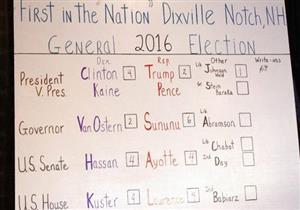 "First in the Nation" Dixville Notch, NH
General 2016 Election
Dem. Rep. Other Write-ins
President Clinton 4 Trump 2 Lib Johnson Weld 1
V. Pres. Kaine Pence Gr Stein Baraka
Governor Van Ostern 2 Sununu 6 Lib Abramson
Lib Chabot
U.S. Senate Hassan 4 Ayotte 4 Ind Day
U.S. House Kuster Lawrence Ind Babiarz